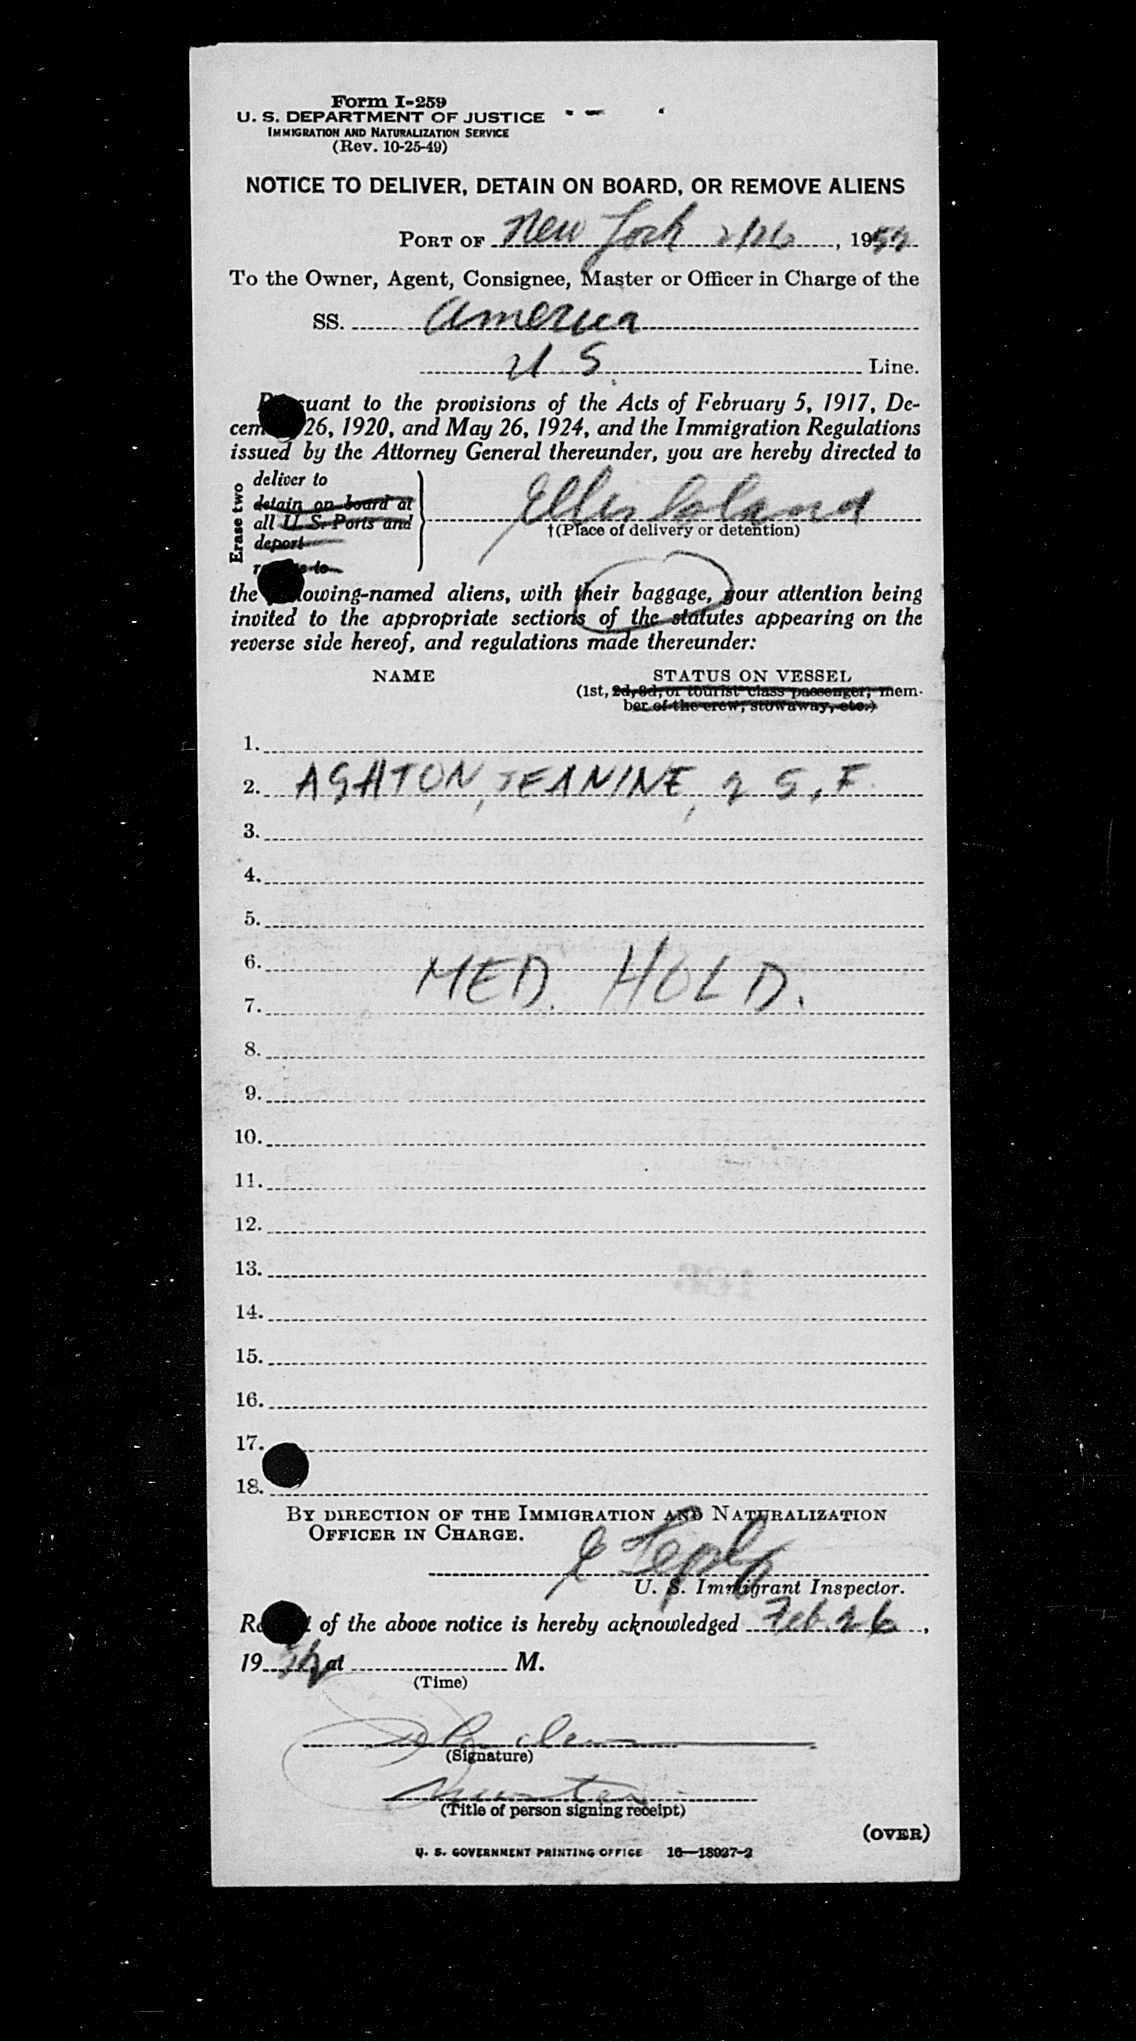 Form I-259
U. S. DEPARTMENT OF JUSTICE
IMMIGRATION AND NATURALIZATION SERVICE
(Rev. 10-25-49)
NOTICE TO DELIVER, DETAIN ON BOARD, OR REMOVE ALIENS
PORT OF New York 2/26, 1952
To the Owner, Agent, Consignee, Master or Officer in Charge of the
SS. America
U S. Line.
suant to the provisions of the Acts of February 5, 1917, De-
cem 26, 1920, and May 26, 1924, and the Immigration Regulations
issued by the Attorney General thereunder, you are hereby directed to
Erase two
deliver to
detain on board at
all U. S. Ports and
deport
Ellis Island
†(Place of delivery or detention)
the lowing-named aliens, with their baggage, your attention being
invited to the appropriate sections of the statutes appearing on the
reverse side hereof, and regulations made thereunder:
NAME STATUS ON VESSEL
(1st, 2d, 3d, or tourist class passenger, mem-
ber of the crew, stowaway, etc.)
1.
2. ASHTON, JEANINE, 25, F.
3.
4.
5.
6.
MED. HOLD.
7.
8.
9.
10.
11.
12.
13.
14.
15.
16.
17.
18.
BY DIRECTION OF THE IMMIGRATION AND NATURALIZATION
OFFICER IN CHARGE.
U. S. Immigrant Inspector.
of the above notice is hereby acknowledged Feb. 26,
1952 at M.
(Time)
(Signature)
(Title of person signing receipt)
(OVER)
U. S. GOVERNMENT PRINTING OFFICE 16—18927-2